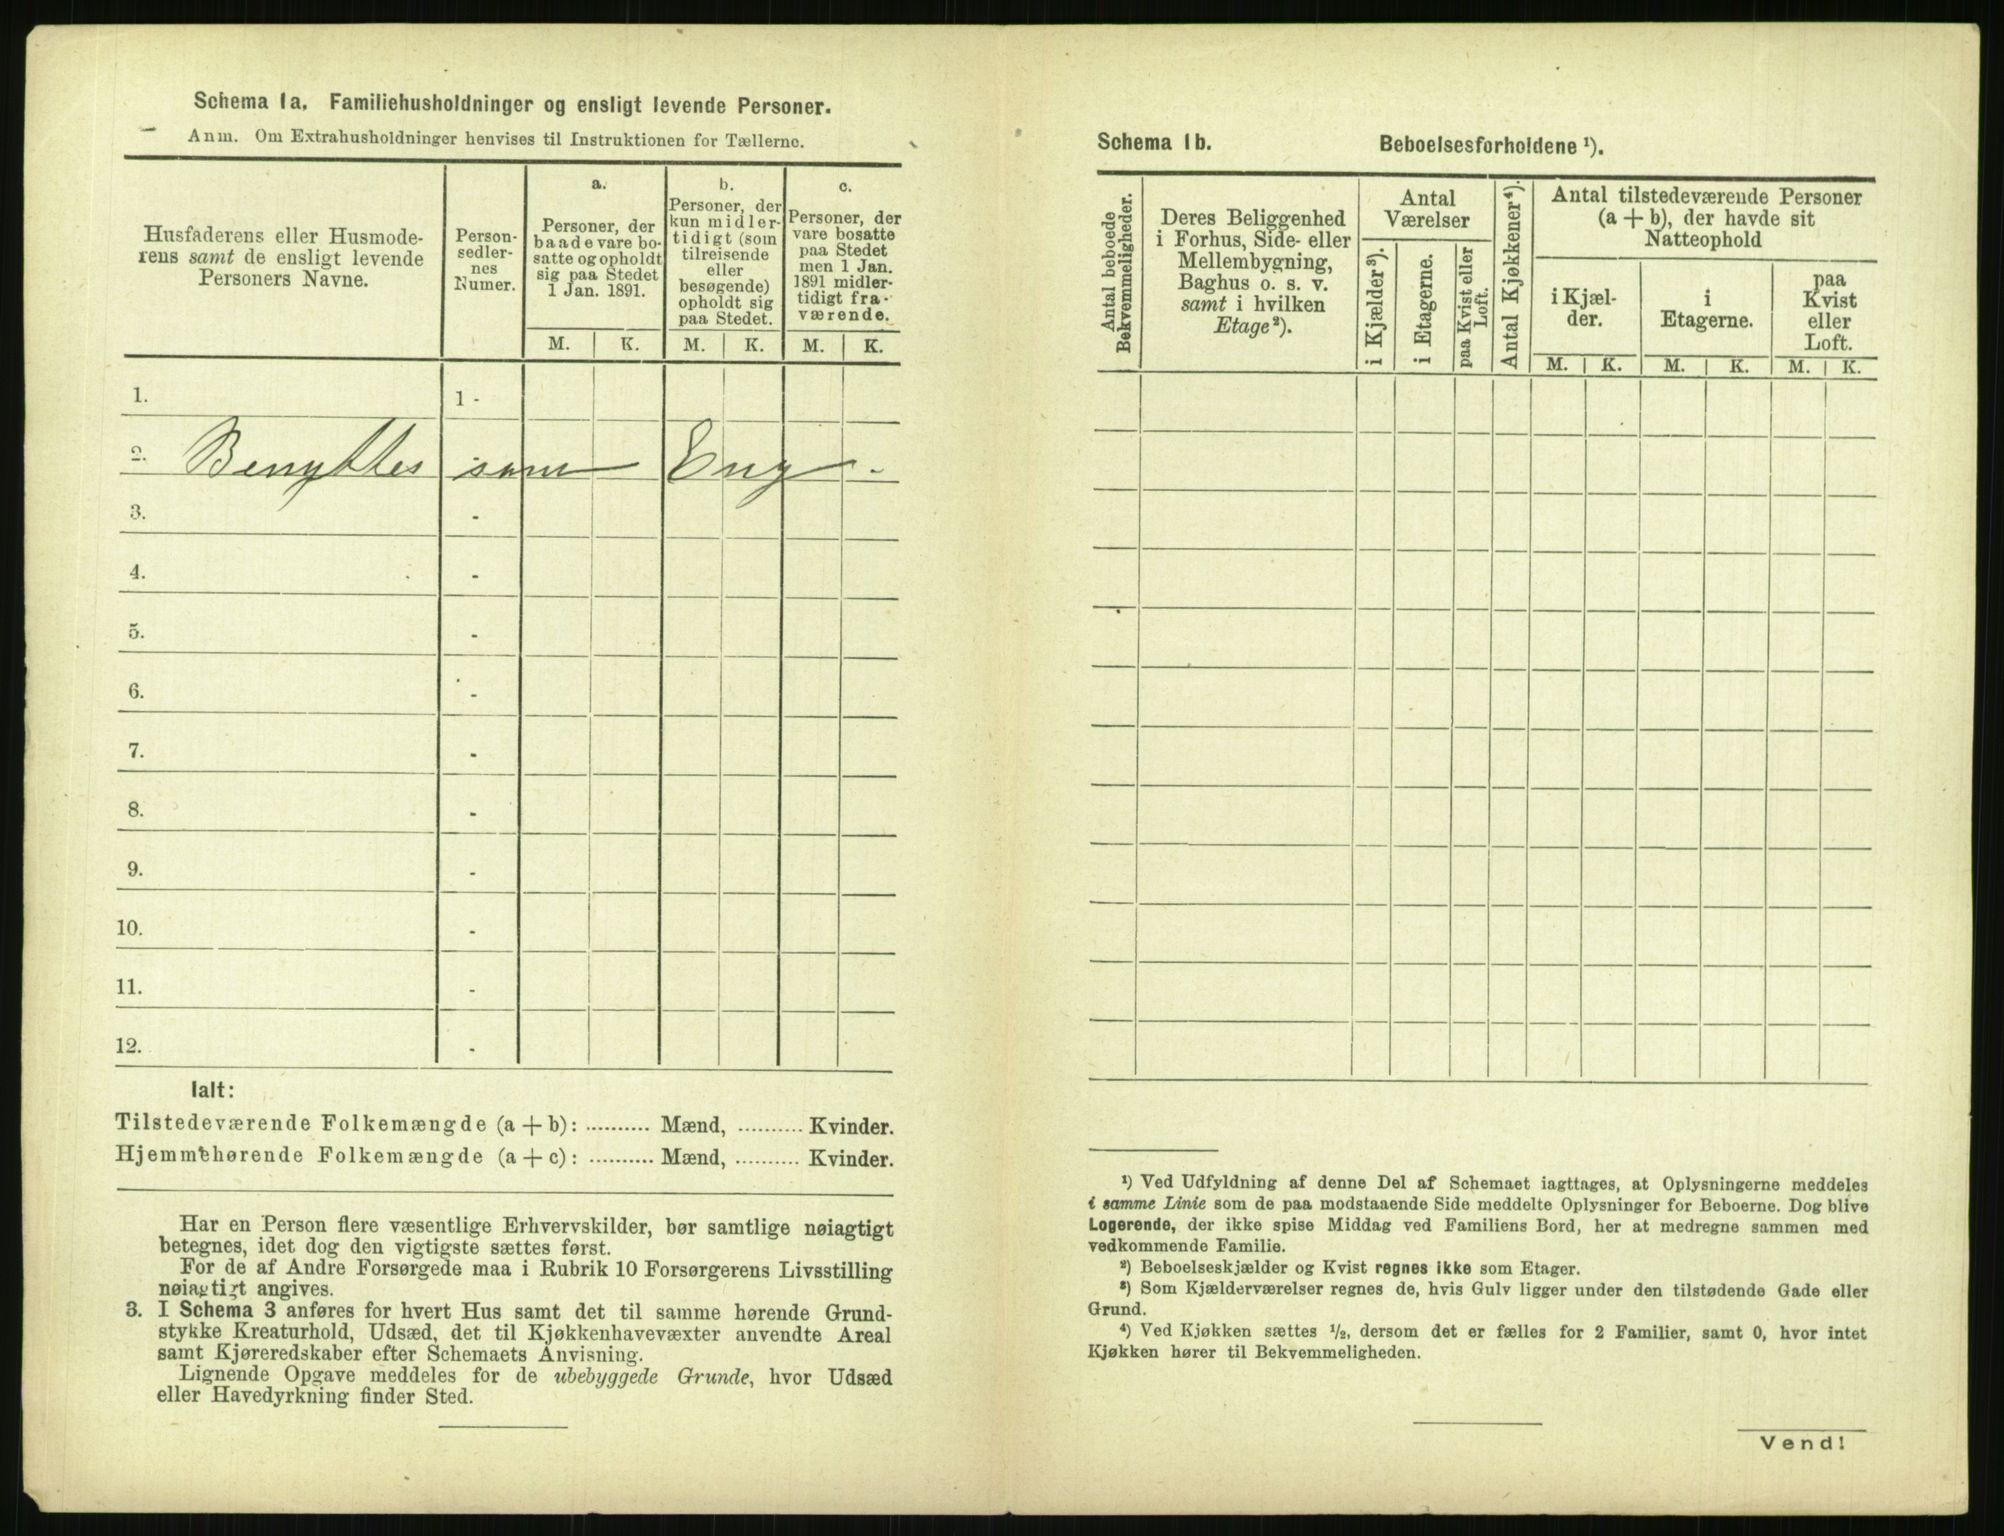 Schema 1a. Familiehusholdninger og ensligt levende Personer.
Anm. Om Extrahusholdninger henvises til Instruktionen for Tællerne.
Husfaderens eller Husmode-
rens samt de ensligt levende
Personers Navne.
Person-
sedler-
nes
Numer.
a.
Personer, der
baade vare bo-
satte og opholdt
sig paa Stedet
1 Jan. 1891.
b.
Personer, der
kun midler-
tidigt (som
tilreisende
eller
besøgende)
opholdt sig
paa Stedet.
c.
Personer, der
vare bosatte
paa Stedet
men 1 Jan.
1891 midler-
tidigt fra-
værende.
M. K. M. K. M. K.
1. 1 -
2. Benyttes som Eng -
3. -
4. -
5. -
6. -
7. -
8. -
9. -
10. -
11. -
12. -
Ialt:
Tilstedeværende Folkemængde (a + b): .......... Mænd, .......... Kvinder.
Hjemmehørende Folkemængde (a + c): .......... Mænd, .......... Kvinder.
Har en Person flere væsentlige Erhvervskilder, bør samtlige nøiagtigt
betegnes, idet dog den vigtigste sættes først.
For de af Andre Forsørgede maa i Rubrik 10 Forsørgerens Livsstilling
nøiagtigt angives.
3. I Schema 3 anføres for hvert Hus samt det til samme hørende Grund-
stykke Kreaturhold, Udsæd, det til Kjøkkenhavevæxter anvendte Areal
samt Kjøreredskaber efter Schemaets Anvisning.
Lignende Opgave meddeles for de ubebyggede Grunde, hvor Udsæd
eller Havedyrkning finder Sted.
Schema 1b. Beboelsesforholdene ¹).
Antal beboede
Bekvemmeligheder.
Deres Beliggenhed
i Forhus, Side- eller
Mellembygning,
Baghus o. s. v.
samt i hvilken
Etage ²).
Antal
Værelser
i Kjælder ³).
i Etagerne.
paa Kvist eller
Loft.
Antal Kjøkkener ⁴).
Antal tilstedeværende Personer
(a + b), der havde sit
Natteophold
i Kjæl-
der.
i
Etagerne.
paa
Kvist
eller
Loft.
M. K. M. K. M. K.
¹) Ved Udfyldning af denne Del af Schemaet iagttages, at Oplysningerne meddeles
i samme Linie som de paa modstaaende Side meddelte Oplysninger for Beboerne. Dog blive
Logerende, der ikke spise Middag ved Familiens Bord, her at medregne sammen med
vedkommende Familie.
²) Beboelseskjælder og Kvist regnes ikke som Etager.
³) Som Kjælderværelser regnes de, hvis Gulv ligger under den tilstødende Gade eller
Grund.
⁴) Ved Kjøkken sættes ½, dersom det er fælles for 2 Familier, samt 0, hvor intet
Kjøkken hører til Bekvemmeligheden.
Vend!